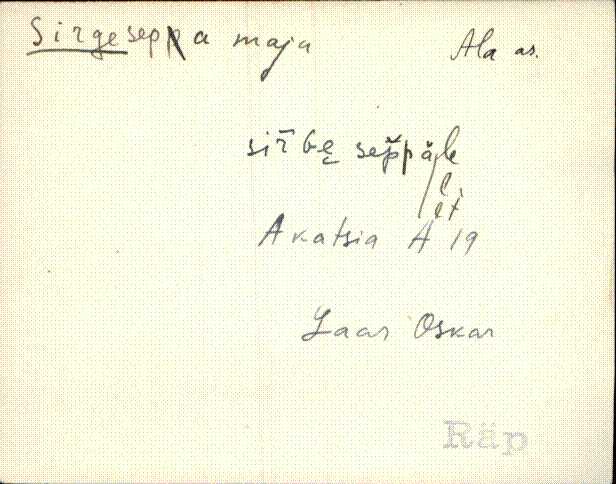 Sirgesepa maja Ala as.
sir̄Ge̬ sep̆päle
li
et
Akatsia A 19
Laar Oskar
Räp